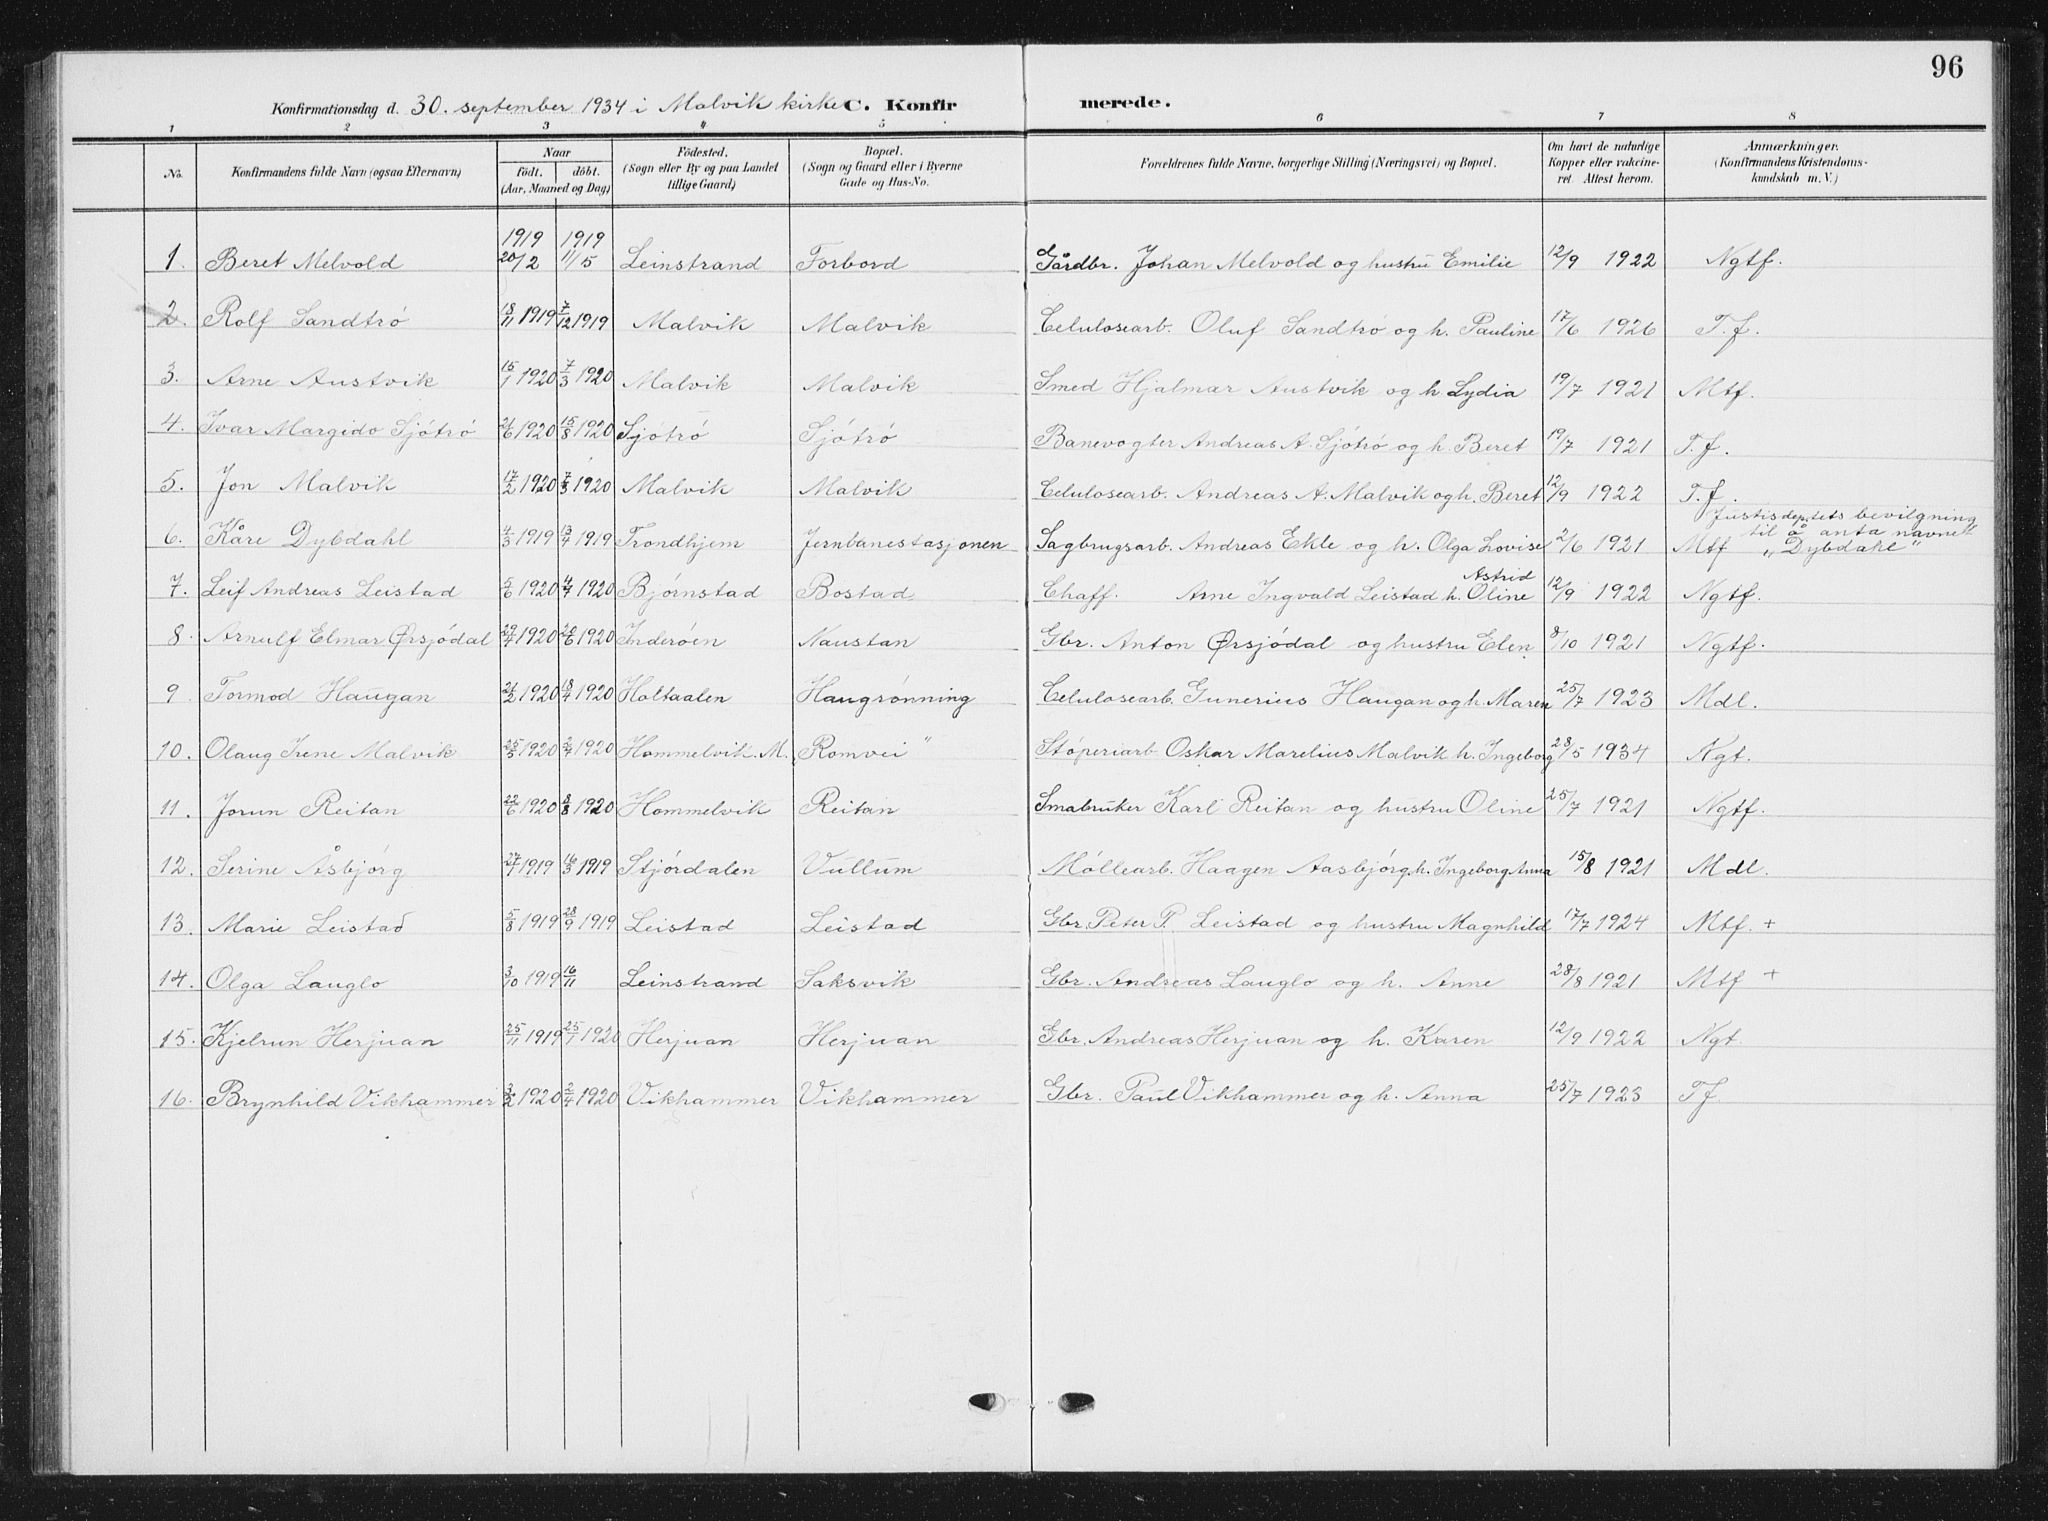 96
Konfirmationsdag d. 30. september 1934 i Malvik kirke C. Konfirmerede.
1 2 3 4 5 6 7 8
No. Konfirmandens fulde Navn (ogsaa Efternavn). Naar födt. döbt. (Aar, Maaned og Dag) Födested. (Sogn eller By og paa Landet tillige Gaard) Bopæl. (Sogn og Gaard eller i Byerne Gade og Hus-No. Forældrenes fulde Navne, borgerlige Stilling (Næringsvei) og Bopæl. Om havt de naturlige Kopper eller vakcineret. Attest herom. Anmærkninger. (Konfirmandens Kristendomskundskab m. V.)
1. Beret Melvold 1919 20/2 1919 11/5 Leinstrand Forbord Gårdbr. Johan Melvold og hustru Emilie 12/9 1922 Ngtf.
2. Rolf Sandtrö 18/11 1919 7/12 1919 Malvik Malvik Celulosearb. Oluf Sandtrö og h. Pauline 17/6 1926 T.f.
3. Arne Austvik 15/1 1920 7/3 1920 Malvik Malvik Smed Hjalmar Austvik og h Lydia 19/7 1921 Mtf.
4. Ivar Margido Sjötrö 21/6 1920 15/8 1920 Sjötrö Sjötrö Banevogter Andreas A. Sjötrö og h. Beret 19/7 1921 T.f.
5. Jon Malvik 17/2 1920 7/3 1920 Malvik Malvik Celulosearb. Andreas A. Malvik og h. Beret 12/9 1922 T.f.
6. Kåre Dybdahl 4/3 1919 13/4 1919 Trondhjem Jernbanestasjonen Sagbrugsarb. Andreas Ekle og h. Olga Lovise 2/6 1921 Mtf Justisdeptets bevilgning til å anta navnet „Dybdahl"
7. Leif Andreas Leistad 5/6 1920 4/7 1920 Bjørnstad Bostad Chaff. Arne Ingvald Leistad h. Astrid Oline 12/9 1922 Ngtf.
8. Arnulf Elmar Ørsjödal 29/4 1920 20/6 1920 Inderöen Naustan Gbr. Anton Ørsjödal og hustru Elen 8/10 1921 Ngtf.
9. Tormod Haugan 21/2 1920 18/4 1920 Holtaalen Haugrönning Celulosearb. Gunerius Haugan og h. Maren 25/7 1923 Mdl.
10. Olaug Irene Malvik 25/5 1920 2/4 1920 Hommelvik. M. „Romvei" Stöperiarb Oskar Marelius Malvik h. Ingeborg 28/5 1934 Ngt.
11. Jorun Reitan 22/6 1920 8/8 1920 Hommelvik Reitan Smabruker Karl Reitan og hustru Oline 25/7 1921 Ngtf.
12. Serine Åsbjörg 27/7 1919 16/3 1919 Stjördalen Vullum Möllearb. Haagen Aasbjörg h. Ingeborg Anna 15/8 1921 Mdl.
13. Marie Leistad 5/8 1919 28/9 1919 Leistad Leistad Gbr. Peter P. Leistad og hustru Magnhild 17/7 1924 Mtf. +
14. Olga Lauglo 3/10 1919 16/11 Leinstrand Saksvik Gbr. Andreas Lauglo og h. Anne 28/8 1921 Mtf +
15. Kjelrun Herjuan 25/11 1919 25/1 1920 Herjuan Herjuan Gbr. Andreas Herjuan og h. Karen 12/9 1922 Ngt.
16. Brynhild Vikhammer 3/2 1920 2/4 1920 Vikhammer Vikhammer Gbr. Paul Vikhammer og h. Anna 25/7 1923 Tf.